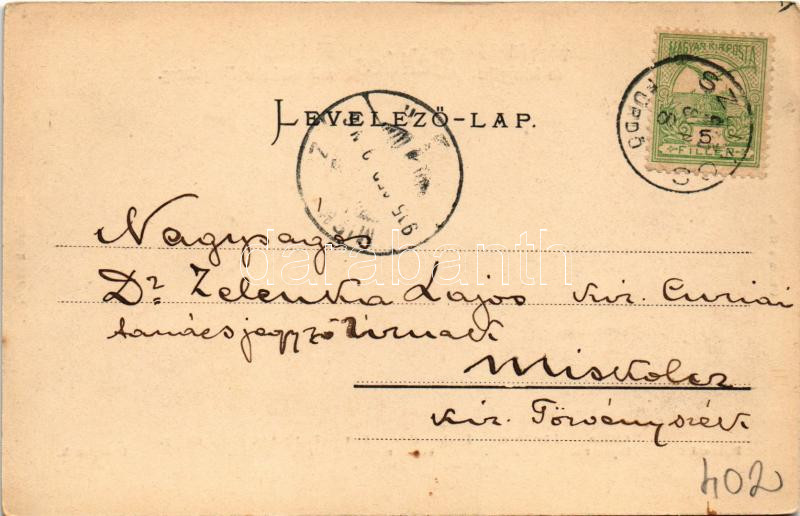 MAGYAR KIR. POSTA
5
FILLÉR
FÜRDŐ
LEVELEZŐ-LAP.
915
Nagyságos
Dr Zelenka Lajos kir. Curiai
tanácsjegyző Úrnak
Miskolcz
kir. Törvényszék
402
darabanth